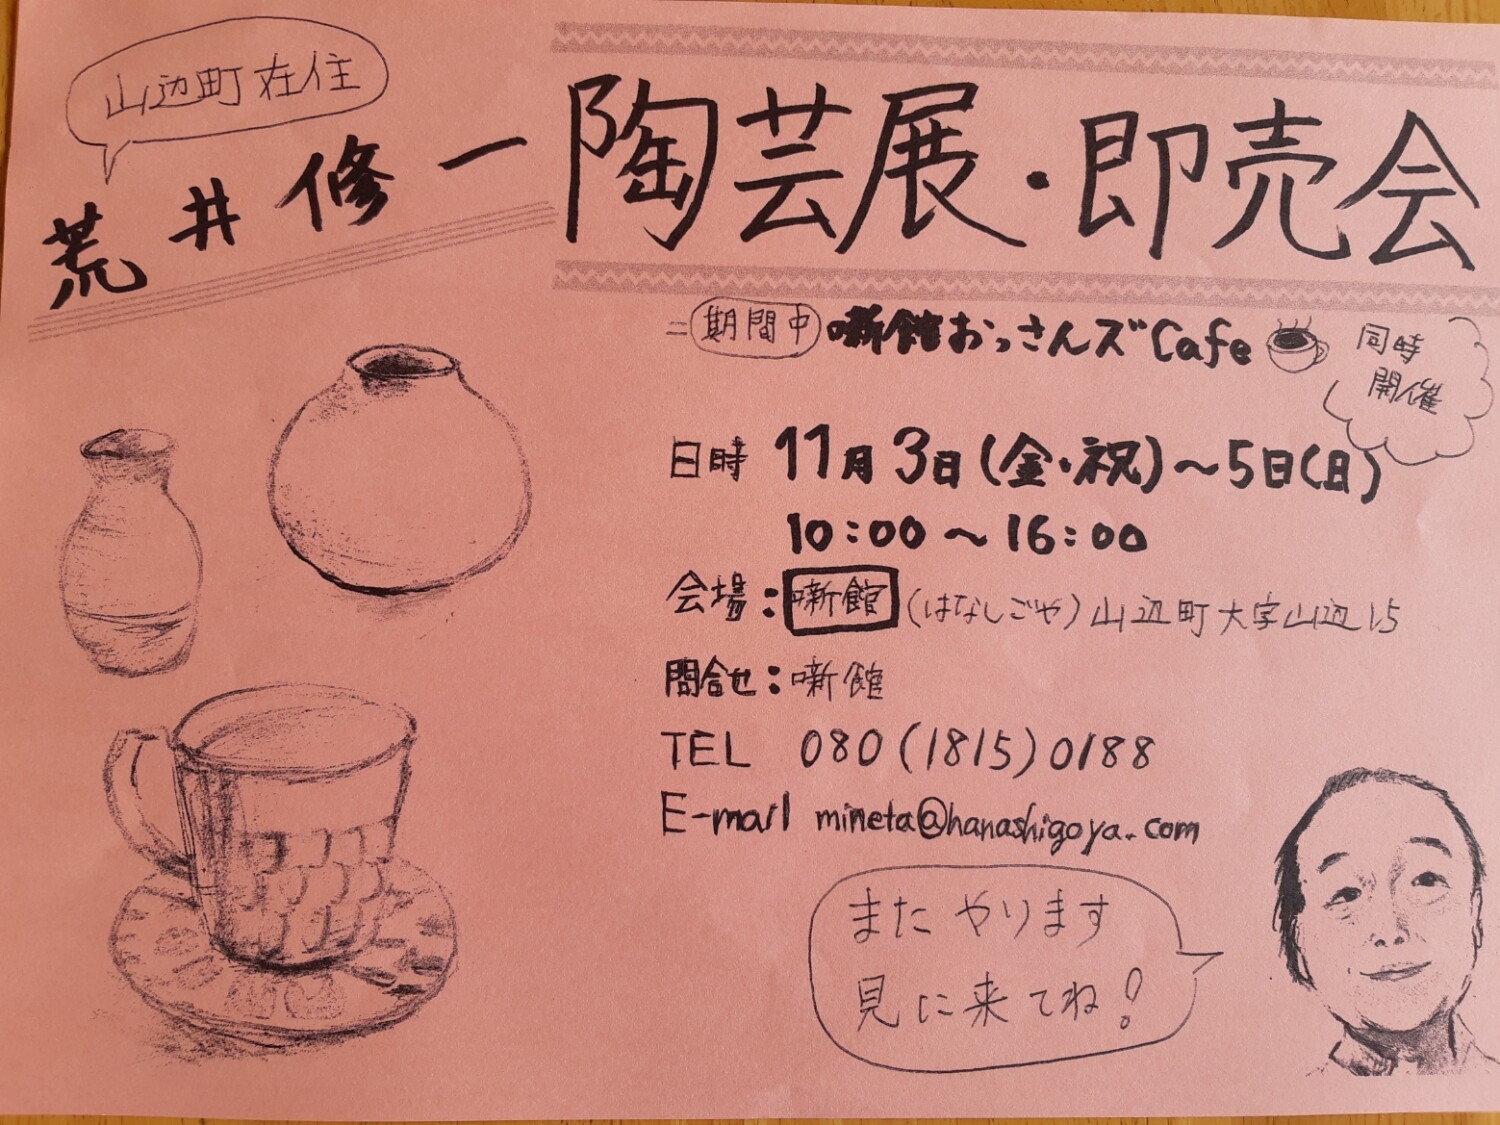 山辺町在住
荒井修一
陶芸展・即売会
=期間中 噺館おっさんズCafe
同時
開催
日時 11月3日(金・祝)~5日(日)
10:00~16:00
会場:噺館(はなしごや)山辺町大字山辺15
問合せ:噺館
TEL 080(1815)0188
E-mail mineta@hanashigoya.com
また やります
見に来てね!